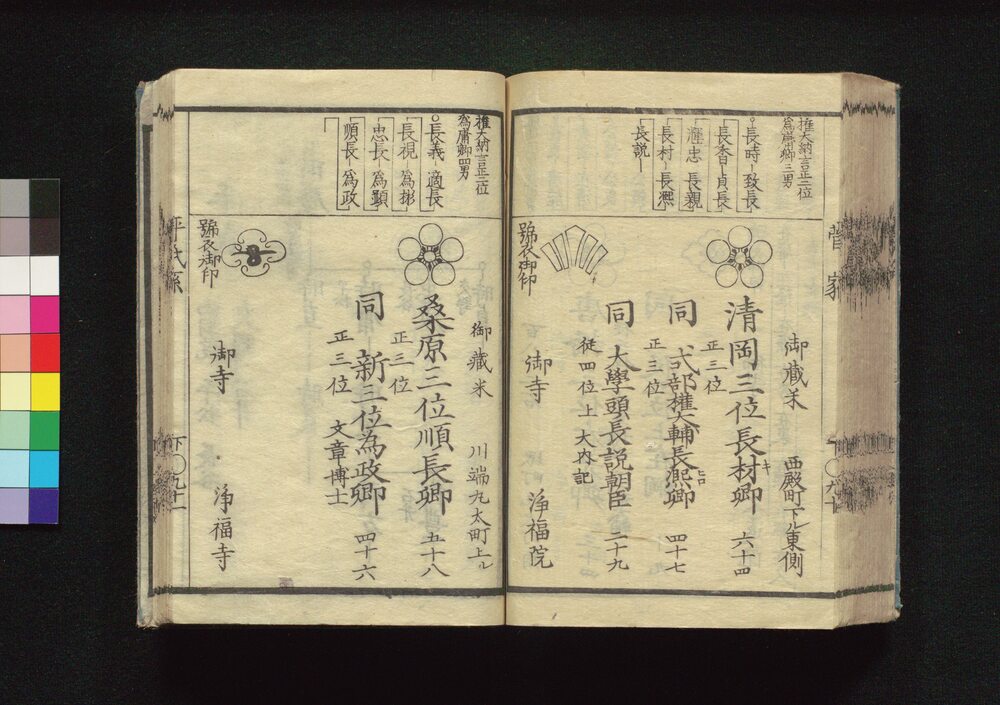 菅家
權大納言正二位
為庸卿三男
長時－致長
長香－貞長
長親
長村－長凞
長説－
御藏米
西殿町下ル東側
清岡三位長材卿 六十四
キ
正三位
同 式部權大輔長凞卿 四十七
正三位
同 大學頭長説朝臣 二十九
從四位上 大内記
號衣御印
御寺 淨福院
權大納言正二位
為庸卿四男
長義－適長
長視－為彬
忠長－為顯
順長－為政
御藏米 川端丸太町上ル
桑原三位順長卿 五十八
正三位
同 新三位為政卿 四十六
正三位 文章博士
號衣御印
御寺 淨福寺
下〇九十一